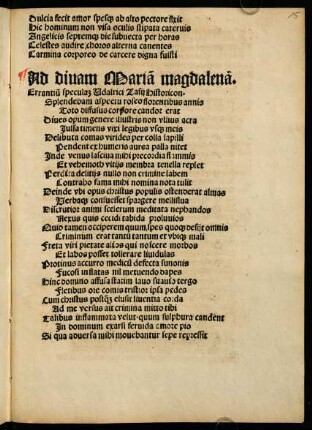 15
Dulcia fecit amor spesq̃ ab alto pectore fixit
Hic hominum non visa oculis stipata cateruis
Angelicis septemq̃ die subiecta per horas
Celestes audire choros alterna canentes
Carmina corporeo de carcere digna fuisti
Ad diuam Mariã magdalenã.
Errantiũ speculaq̃ Vdalrici Zasij Historicon.
Splendebam aspectu roseo florentibus annis
Toto diffusus corpore candor erat
Diues opum genere illustris non vllius acra
Jussa timens vixi legibus vsq̃ meis
Delibuta comas virides per colla lapilli
Pendent ex humeris aurea palla nitet
Inde venus lasciua mihi precordia flammis
Et vehemodi vitijs membra tenella replet
Perdita delitijs nullo non crimine labem
Contrabo fama mihi nomina nota tulit
Deinde vbi opus christus populis ostenderat almas
Verbaq̃ coniuesset spargere melliflua
Discrutior animi scelerum meditata nephandos
Actus quis cecidi tabida proluuios
Nulo tamen occiperem quum, spes quoq̃ deesit omnis
Criminum erat tanti tantum et vbiq̃ mali
Freta viri pietate alios qui noscere morbos
Et labos posset tolerare liuidulas
Protinus accurro medicũ defecta simonis
Fucosi inflatas nil metuendo dapes
Hinc domino affusa statim lauo suauio tergo
Fletibus ore comis tristior ipsa pedes
Cum christus postq̃ elusit liuentia corda
Ad me versus ait crimina mitto tibi
Talibus inflammata velut quum sulphura candent
In dominum exarsi feruida amore pio
Si qua aduersa mihi mouebantur sepe repressit